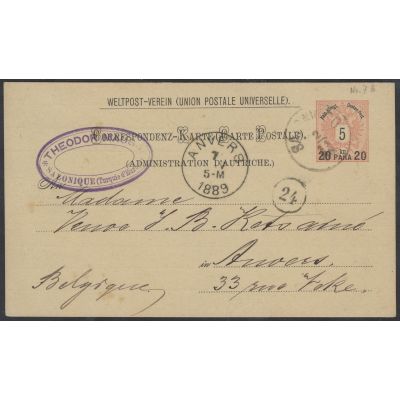 No. 7 B
WELTPOST-VEREIN (UNION POSTALE UNIVERSELLE).
CORRESPONDENZ-KARTE (CARTE POSTALE).
5
20 PARA 20
(ADMINISTRATION D'AUTRICHE.)
THEODOR
SALONIQUE (Turquie d'Eur
ANVERS
7
5-M
1889
24
Madame
Veuve J. B.
in Anvers.
Belgique.
33 rue